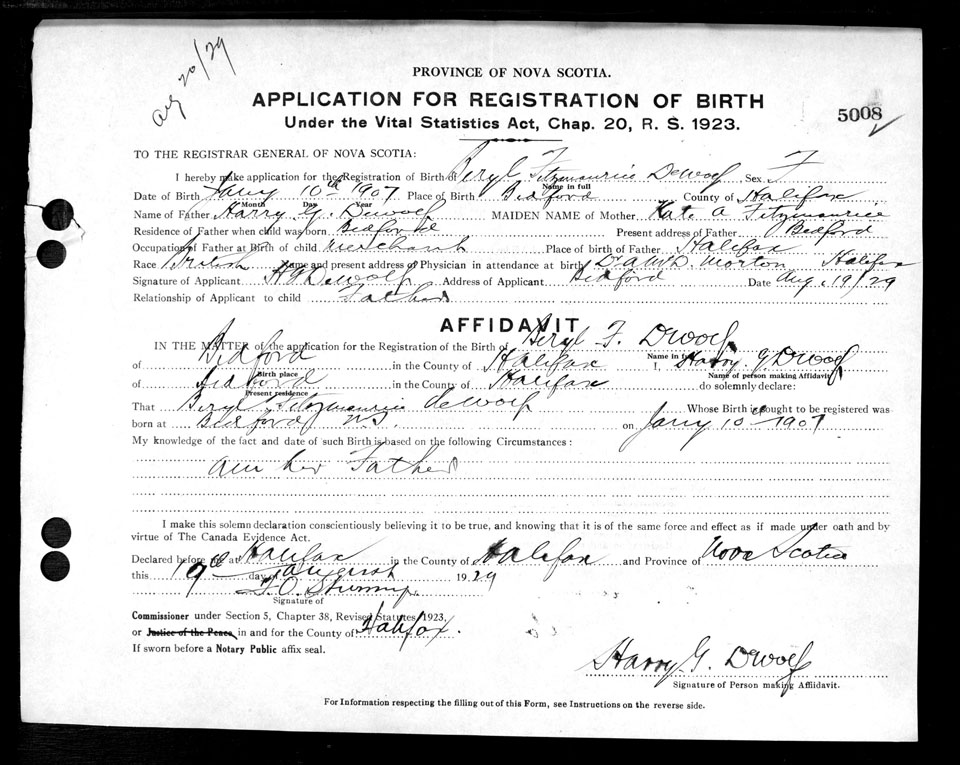 Aug 20/29
PROVINCE OF NOVA SCOTIA.
APPLICATION FOR REGISTRATION OF BIRTH
5008
Under the Vital Statistics Act, Chap. 20, R. S. 1923.
TO THE REGISTRAR GENERAL OF NOVA SCOTIA:
I hereby make application for the Registration of Birth of Beryl Fitzmaurice DeWolf Sex F
Name in full
Date of Birth Jany 10th 1907 Place of Birth Bedford County of Halifax
Month Day Year
Name of Father Harry G. Dewolf MAIDEN NAME of Mother Kate A Fitzmaurice
Residence of Father when child was born Bedford Present address of Father Bedford
Occupation of Father at Birth of child merchant Place of birth of Father Halifax
Race British Name and present address of Physician in attendance at birth Morton Halifax
Signature of Applicant H G Dewolf Address of Applicant Bedford Date Aug. 19/29
Relationship of Applicant to child Father
AFFIDAVIT
IN THE MATTER of the application for the Registration of the Birth of Beryl F. DWolf
Name in full
of Bedford in the County of Halifax I, Harry G. DWolf
Birth place Name of person making Affidavit
of Bedford in the County of Halifax do solemnly declare:
Present residence
That Beryl Fitzmaurice deWolf Whose Birth is sought to be registered was
born at Bedford NS. on Jany 10th 1907
My knowledge of the fact and date of such Birth is based on the following Circumstances:
am her Father
I make this solemn declaration conscientiously believing it to be true, and knowing that it is of the same force and effect as if made under oath and by
virtue of The Canada Evidence Act.
Declared before me at Halifax in the County of Halifax and Province of Nova Scotia
this 19th day of August 1929
Signature of
Commissioner under Section 5, Chapter 38, Revised Statutes 1923,
or Justice of the Peace, in and for the County of Halifax.
If sworn before a Notary Public affix seal.
Harry G. DWolf
Signature of Person making Affidavit.
For Information respecting the filling out of this Form, see Instructions on the reverse side.